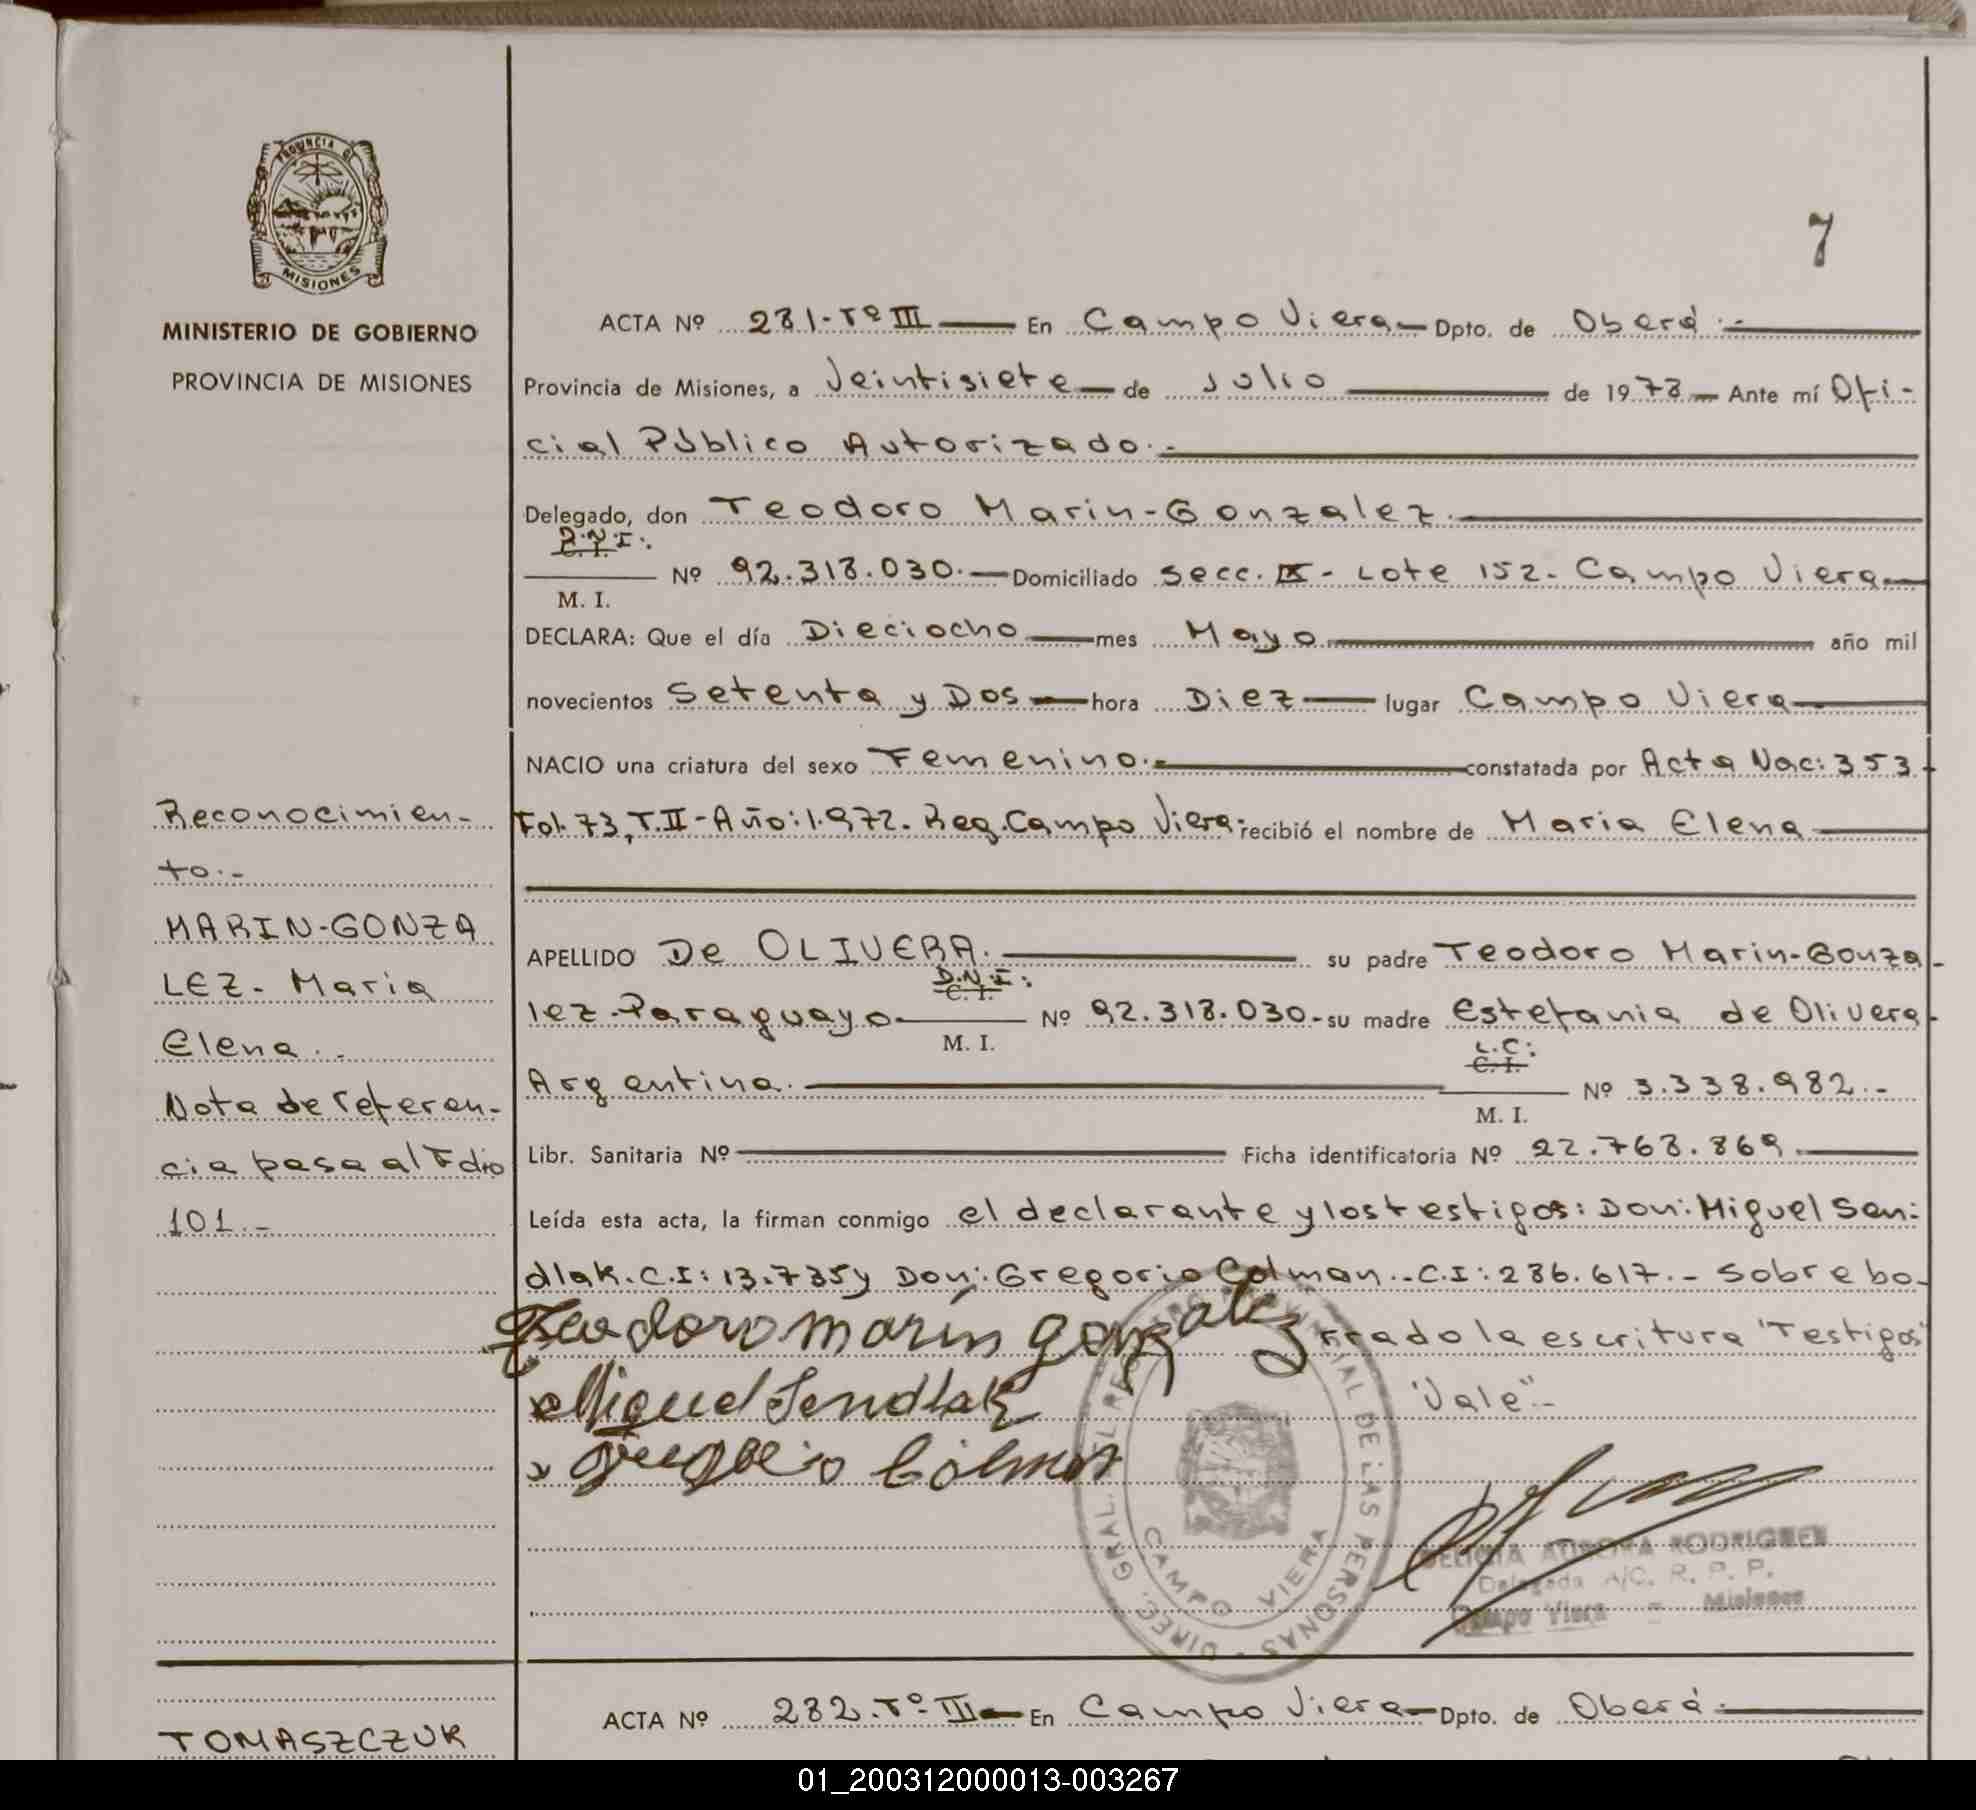 PROVINCIA DE
MISIONES
MINISTERIO DE GOBIERNO
PROVINCIA DE MISIONES
7
ACTA Nº 281-Tº III En Campo Viera Dpto. de Oberá.-
Provincia de Misiones, a Veintisiete de Julio de 1978 Ante mí Ofi-
cial Público Autorizado.-
Delegado, don Teodoro Marin-Gonzalez.
D.N.I:.
C. I.
Nº 92.318.030.- Domiciliado Secc. IX- Lote 152- Campo Viera
M. I.
DECLARA: Que el día Dieciocho mes Mayo año mil
novecientos Setenta y Dos hora Diez lugar Campo Viera
NACIO una criatura del sexo Femenino.- constatada por Acta Nac: 353-
Fol. 73, T.II-Año:1.972. Reg. Campo Viera- recibió el nombre de Maria Elena
APELLIDO De OLIVERA. su padre Teodoro Marin-Gonza-
D.N.I:
C. I.
lez-Paraguayo- Nº 92.318.030- su madre Estefania de Olivera-
M. I.
L.C:
C. I.
Argentina. Nº 3.338.982.-
M. I.
Libr. Sanitaria Nº Ficha identificatoria Nº 22.768.869.
Leída esta acta, la firman conmigo el declarante y los testigos: Don: Miguel Sen-
dlak. C.I: 13.735 y Don: Gregorio Colman.-C.I: 286.617.- Sobre bo-
rrado la escritura "Testigos"
"Vale".-
Teodoro marin gonzalez
Miguel Sendlak
Gregorio Colman
DIREC. GRAL. DEL REGISTRO PROVINCIAL DE LAS PERSONAS
CAMPO VIERA
AURORA RODRIGUEZ
Delegada A/C. R. P. P.
Campo Viera - Misiones
Reconocimien-
to.-
MARIN-GONZA
LEZ- Maria
Elena.-
Nota de referen-
cia pasa al Folio
101.-
ACTA Nº 282-Tº III En Campo Viera Dpto. de Oberá-
TOMASZCZUK
01_200312000013-003267